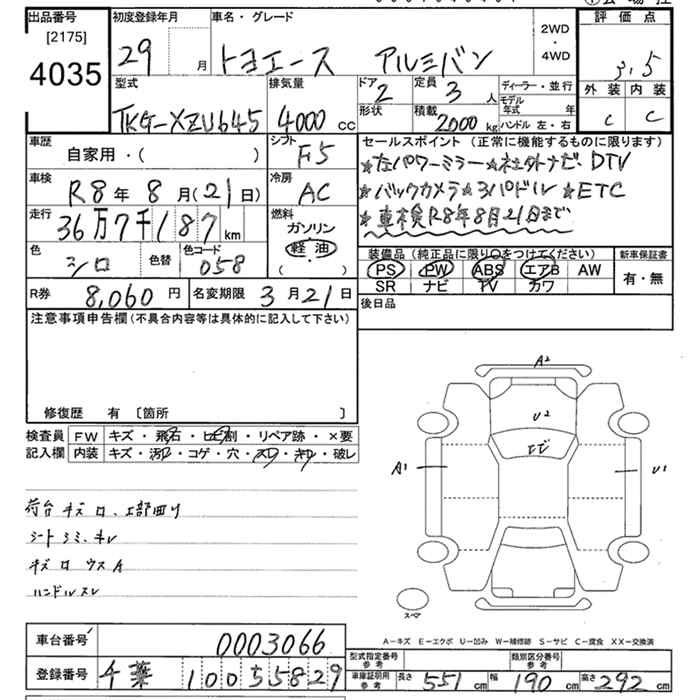 出品番号
[2175]
4035
初度登録年月
29 月
車名・グレード
トヨエース アルミバン
2WD
・
4WD
評価点
3.5
外装 内装
C C
型式
TKG-XZU645
排気量
4000 cc
ドア
2
形状
定員
3 人
積載
2000 kg
ディーラー・並行
モデル年式 年
ハンドル 左・右
車歴
自家用・(
シフト
F5
車検
R8年 8月(21日)
冷房
AC
走行
36万7千187 km
燃料
ガソリン
軽油
( ・ )
色
シロ
色替
色コード
058
セールスポイント(正常に機能するものに限ります)
☆左パワーミラー☆社外ナビ、DTV
☆バックカメラ☆3パドル ☆ETC
☆車検R8年8月21日まで
装備品(純正品に限り○をつけてください)
PS PW ABS エアB AW
SR ナビ TV カワ
新車保証書
有・無
後日品
R券 8,060 円
名変期限 3月21日
注意事項申告欄(不具合内容等は具体的に記入して下さい)
修復歴 有 〔箇所 〕
検査員
記入欄
FW キズ・飛石・ヒビ割・リペア跡・×要
内装 キズ・汚れ・コゲ・穴・スレ・キレ・破レ
荷台 キズ ロ、工部曲り
シート シミ、キレ
キズ ロ ウス A
ハンドル スレ
A2
U2
ヒビ
A1
U1
スペア
A-キズ E-エクボ U-凹み W-補修跡 S-サビ C-腐食 XX-交換済
車台番号 0003066
登録番号 千葉 100 5 5829
型式指定番号
参考
類別区分番号
参考
車庫証明用
参考
長さ 551 cm 幅 190 cm 高さ 292 cm